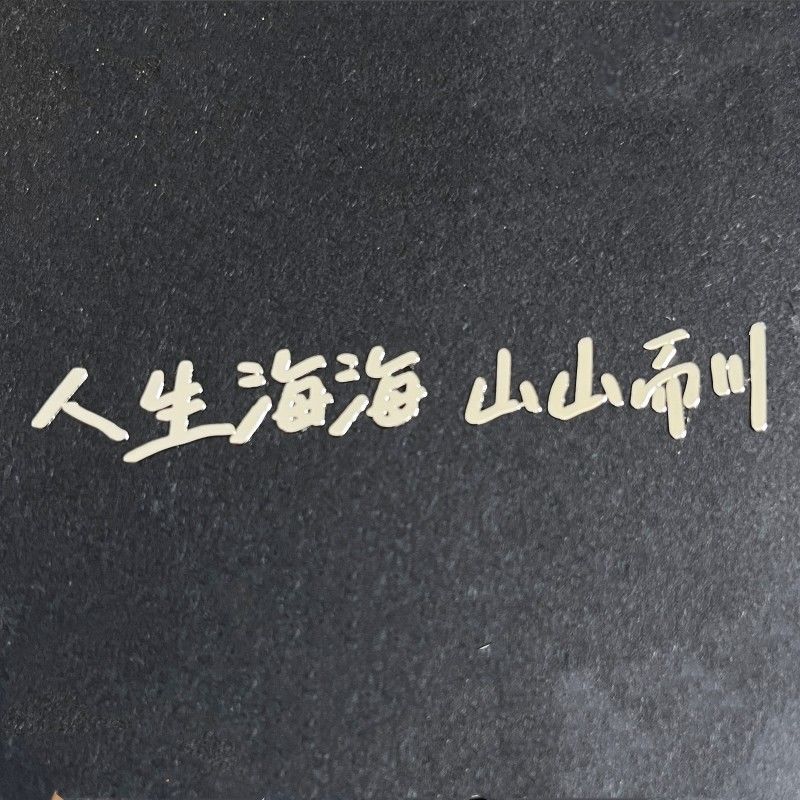 人生海海 山山而川